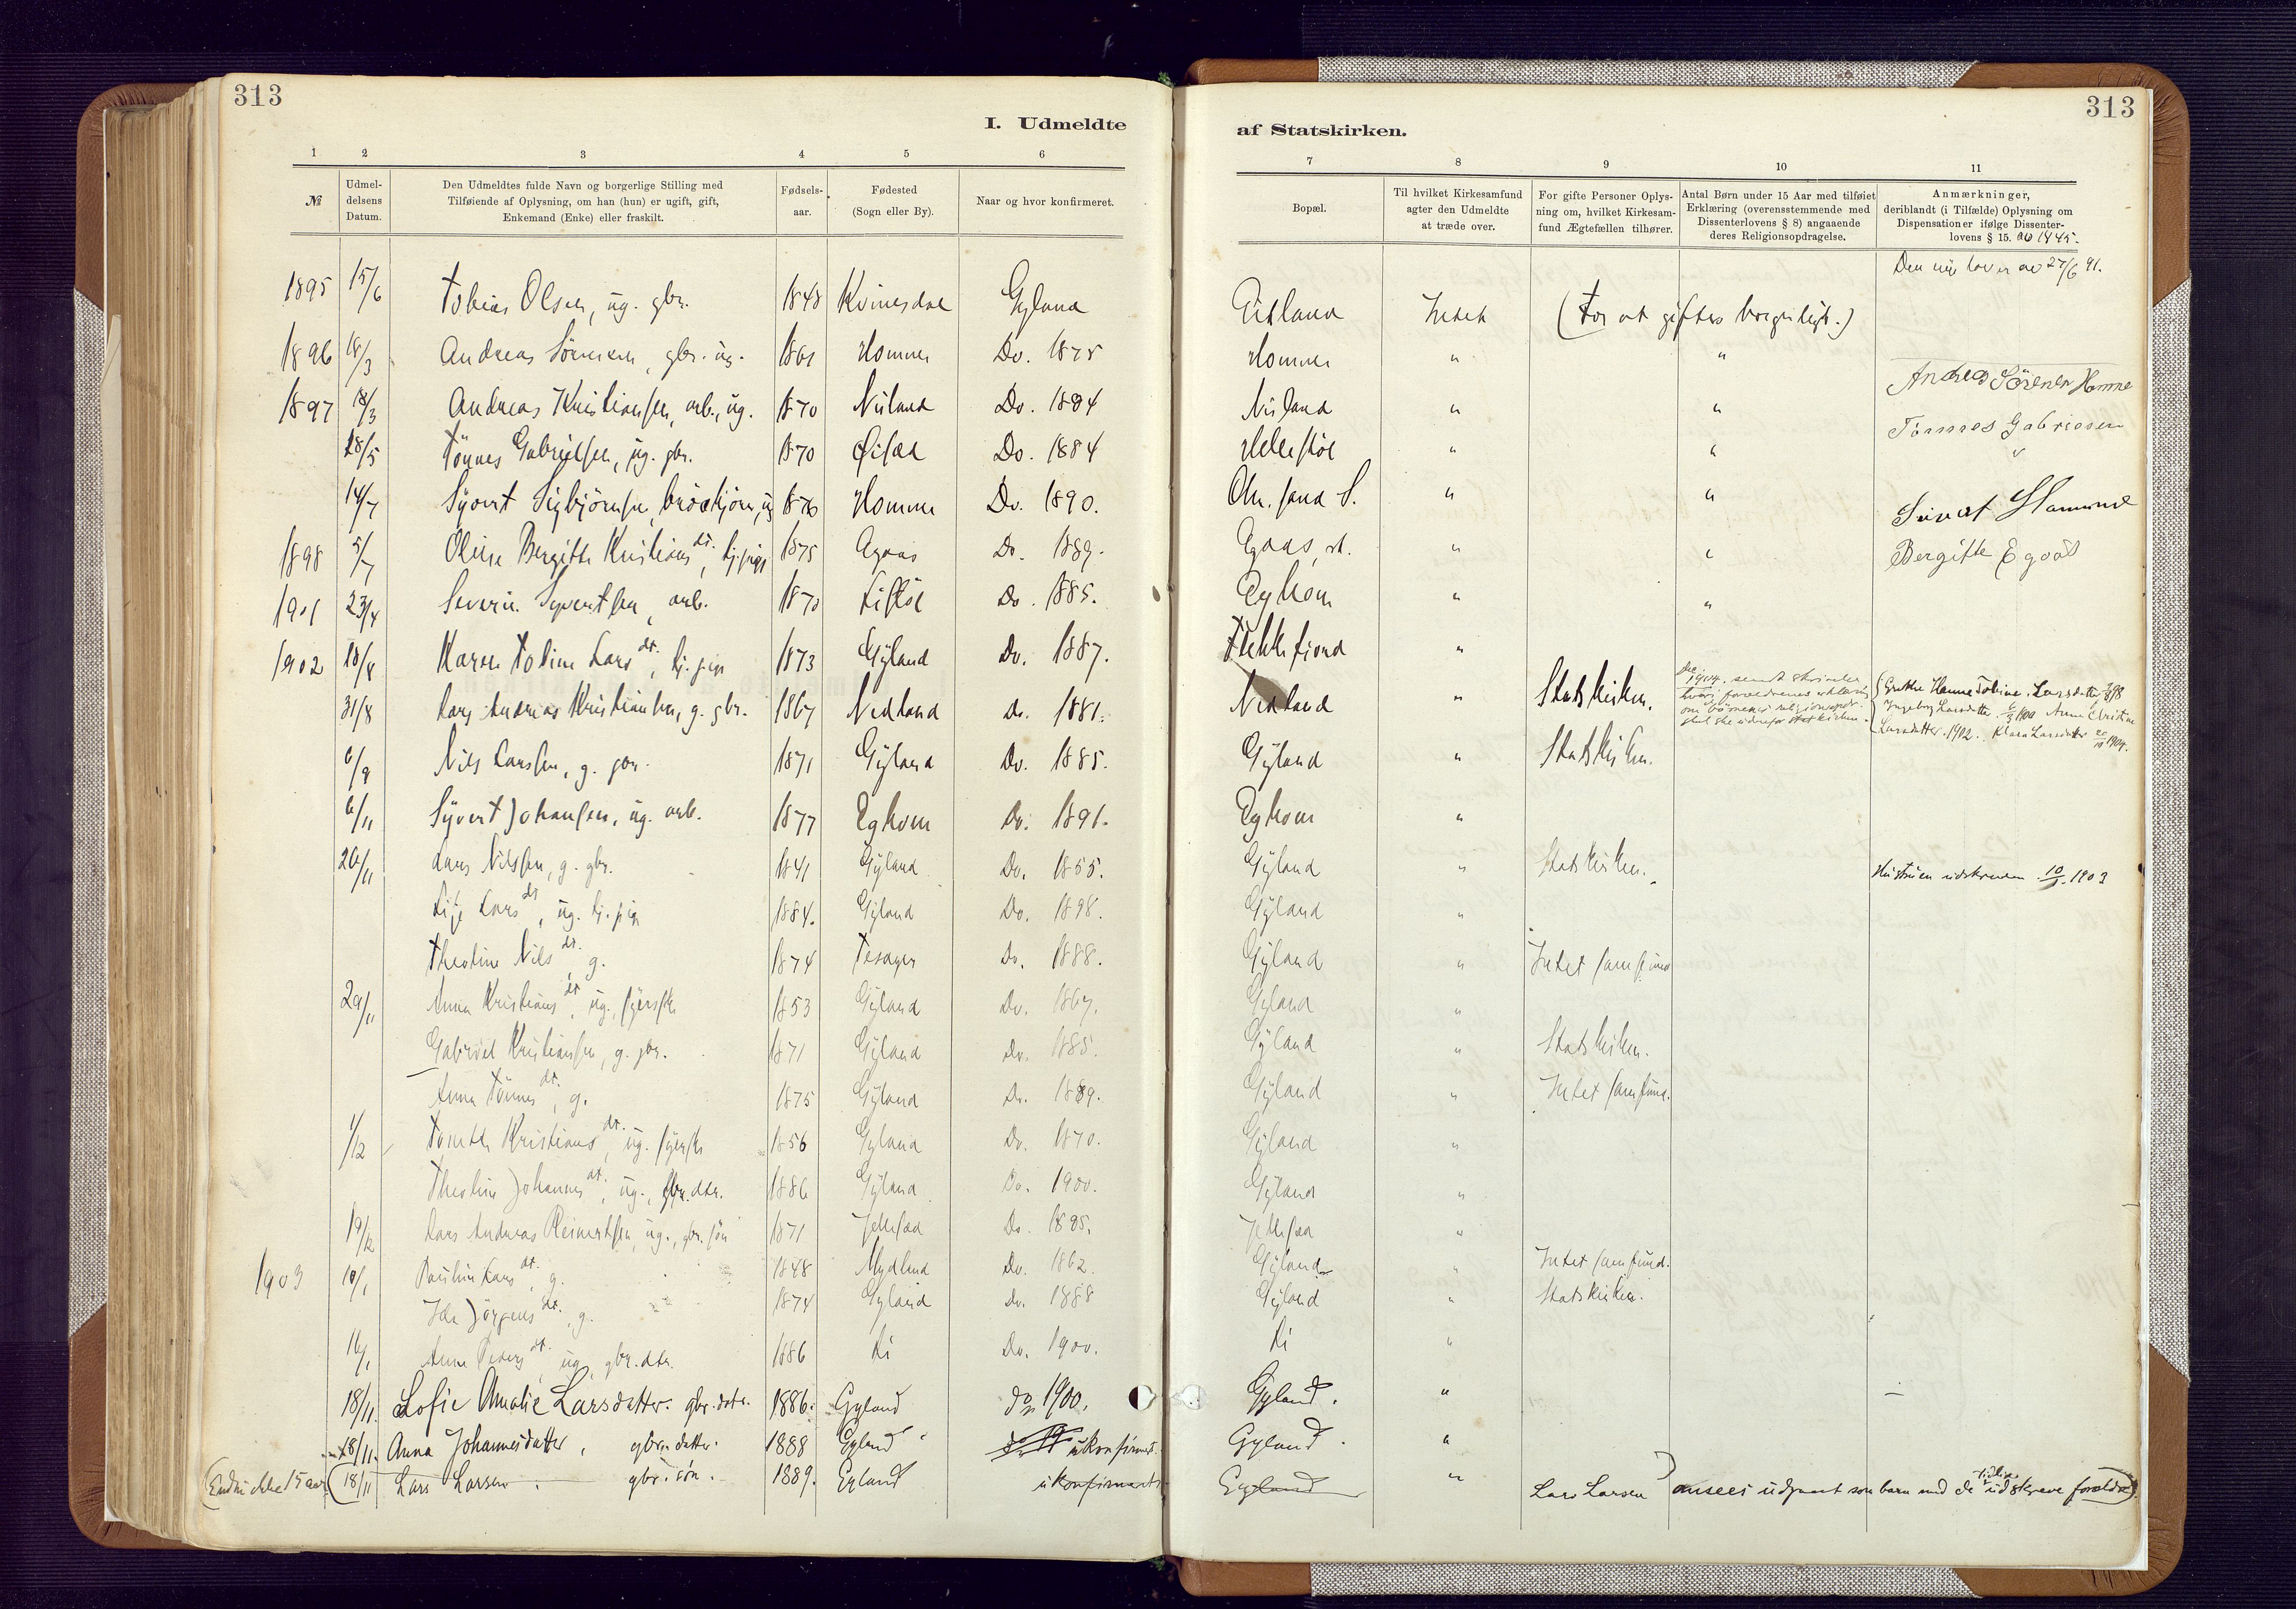 313
I. Udmeldte
af Statskirken.
313
1 2 3 4 5 6 7 8 9 10 11
№
Udmel-
delsens
Datum.
Den Udmeldtes fulde Navn og borgerlige Stilling med
Tilføiende af Oplysning, om han (hun) er ugift, gift,
Enkemand (Enke) eller fraskilt.
Fødsels-
aar.
Fødested
(Sogn eller By).
Naar og hvor konfirmeret.
Bopæl.
Til hvilket Kirkesamfund
agter den Udmeldte
at træde over.
For gifte Personer Oplys-
ning om, hvilket Kirkesam-
fund Ægtefællen tilhører.
Antal Børn under 15 Aar med tilføiet
Erklæring (overensstemmende med
Dissenterlovens § 8) angaaende
deres Religionsopdragelse.
Anmærkninger,
deriblandt (i Tilfælde) Oplysning om
Dispensationer ifølge Dissenter-
lovens § 15. av 1845.
Den nye lov er av 27/6 91.
1895 15/6 Tobias Olsen, ug. gbr. 1848 Kvinesdal Gyland Intet (For at giftes borgerligt.)
1896 18/3 Andreas Sörensen, gbr. ug. 1861 Homme Do. 1875 Homme " " Andreas Sörensen Homme
1897 18/3 Andreas Kristiansen, arb., ug. 1870 Nuland Do. 1884 Nuland " "
28/5 Tönnes Gabrielsen, ug. gbr. 1870 Do. 1884 " " Tönnes Gabrielsen
14/7 Syvert Sigbjörnsen, ug 1876 Homme Do. 1890. Chr.sand S. " "
1898 5/7 Oline Bergitte Kristians dt., tj.pige 1875 Do. 1889. " " Bergitte Egaas
1901 23/4 Severin Syvertsen, arb. 1870 Do. 1885. Eghom " "
1902 18/8 Karen Toline Lars dt., tj.pige 1873 Gyland Do. 1887. Flekkefjord "
31/8 Lars Andreas Kristiansen, g. gbr. 1867 Nedland Do. 1881. Nedland " Statskirken. Grethe Hanna Tobine Larsdatter
Ingeborg Larsdatter 1900 Anne Christine
Larsdatter 1902. Klara Larsdatter 1904.
6/9 Nils Larssen, g. gbr. 1871 Gyland Do. 1885. Gyland " Statskirken.
6/11 Syvert Johansen, ug. arb. 1877 Eghom Do. 1891. Eghom "
26/11 Lars Nilssen, g. gbr. 1841 Gyland Do. 1855. Gyland " Statskirken. Hustruen udskreven 10/1 1903
Lars dt., ug. tj.pige 1884. Gyland Do. 1898. Gyland "
Theoline Nils dt. g. 1874 Tesager Do. 1888. Gyland " Intet samfund
29/11 Anna Kristians dt., ug., syerske 1853 Gyland Do. 1867. Gyland "
Gabriel Kristiansen, g. gbr. 1871 Gyland Do. 1885. Gyland " Statskirken.
Anna Tönnes dt., g. 1875 Gyland Do. 1889. Gyland " Intet samfund.
1/12 Kristians dt., ug. syerske 1856 Gyland Do. 1870. Gyland "
Theoline Johannes dt., ug., gbr.dtr. 1886 Gyland Do. 1900. Gyland "
19/12 Lars Andreas Reinertsen, ug., gbr. sön 1871 Do. 1885. "
1903 10/1 Pauline Lars dt. g. 1848 Mydland Do. 1862. Gyland " Intet samfund.
Ida Jörgens dt., g. 1874 Gyland Do. 1888 Gyland " Statskirken.
16/1 Anna Peders dt., ug., gbr.dtr. 1886 Li Do. 1900. Li "
18/11. Sofie Amalie Larsdatter. gbr. datr. 1886. Gyland do 1900. Gyland. " –
18/11. Anna Johannesdatter, gbr. datter. 1888 Gyland ukonfirmert. Gyland. "
(Endnu ikke 15 aar) (18/11 Lars Larsen. gbr. sön. 1889. Gyland ukonfirmert Gyland " Lars Larsen ansees udmeldt som barn med de tidligere udskrevne forældre).